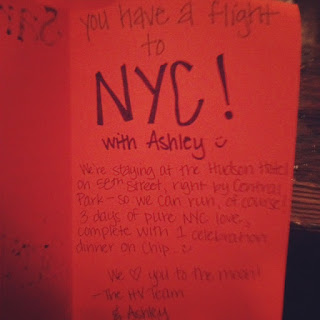 you have a flight
to
NYC!
with Ashley
We're staying at the Hudson Hotel
on 58th Street, right by Central
Park - so we can run, of course!
3 days of pure NYC love,
complete with 1 celebration
dinner on Chip...
We ♡ you to the moon!
- The HV Team
& Ashley